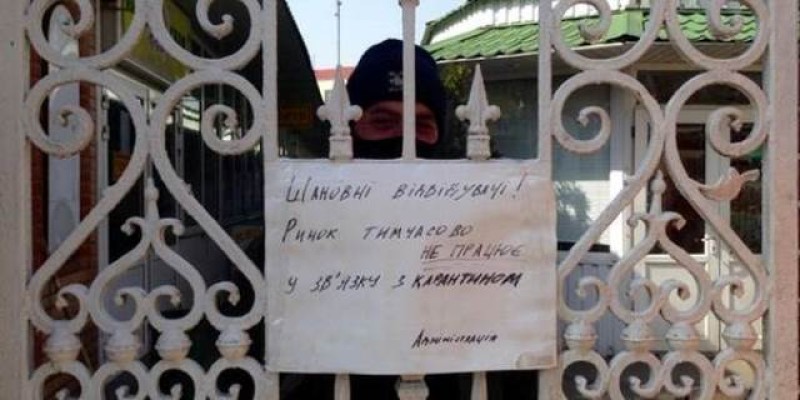 Шановні відвідувачі!
Ринок тимчасово
не працює
у зв'язку з карантином
Адміністрація